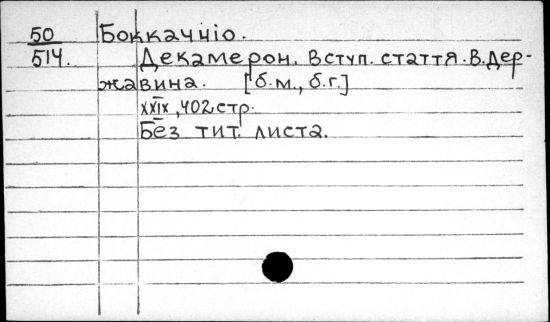 50 Боккаччіо.
514. Декамерон. Вступ. стаття. В. Дер-
жавина. [б.м., б.г.]
XXIX, 402 стр.
Без тит. листа.